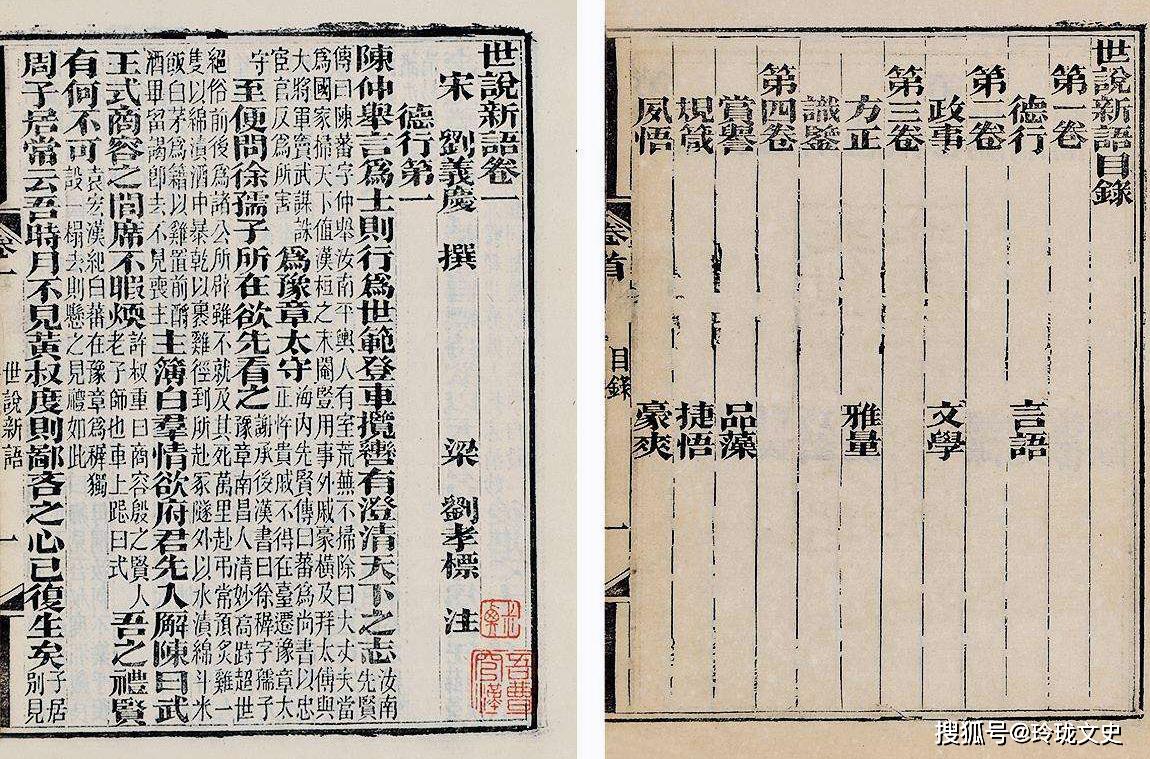 世說新語目錄
第一卷
德行 言語
第二卷
政事 文學
第三卷
方正 雅量
識鑒
第四卷
賞譽 品藻
規箴 捷悟
夙悟 豪爽
卷首 目錄 一
世說新語卷一
宋 劉義慶 撰 梁 劉孝標 注
德行第一
陳仲舉言爲士則行爲世範登車攬轡有澄清天下之志
汝南
先賢
傳曰陳蕃字仲舉汝南平輿人有室荒蕪不掃除曰大丈夫當
爲國家掃天下值漢桓之末閹豎用事外戚豪橫及拜太傅與
大將軍竇武謀誅
宦官反爲所害
爲豫章太守
海內先賢傳曰蕃爲尚書以忠
正忤貴戚不得在臺遷豫章太
守
至便問徐孺子所在欲先看之
謝承後漢書曰徐穉字孺子
豫章南昌人清妙高跱超世
絕俗前後爲諸公所辟雖不就及其死萬里赴弔常預炙雞一
隻以綿漬酒中暴乾以裹雞徑到所赴冢隧外以水漬綿斗米
飯白茅爲藉以雞置前酹
酒畢留謁卽去不見喪主
主簿白羣情欲府君先入廨陳曰武
王式商容之閭席不暇煖
許叔重曰商容殷之賢人
老子師也車上跽曰式
吾之禮賢
有何不可
袁宏漢紀曰蕃在豫章爲穉獨
設一榻去則懸之見禮如此
周子居常云吾時月不見黃叔度則鄙吝之心已復生矣
子居
別見
卷一 世說新語 一
搜狐号@玲珑文史